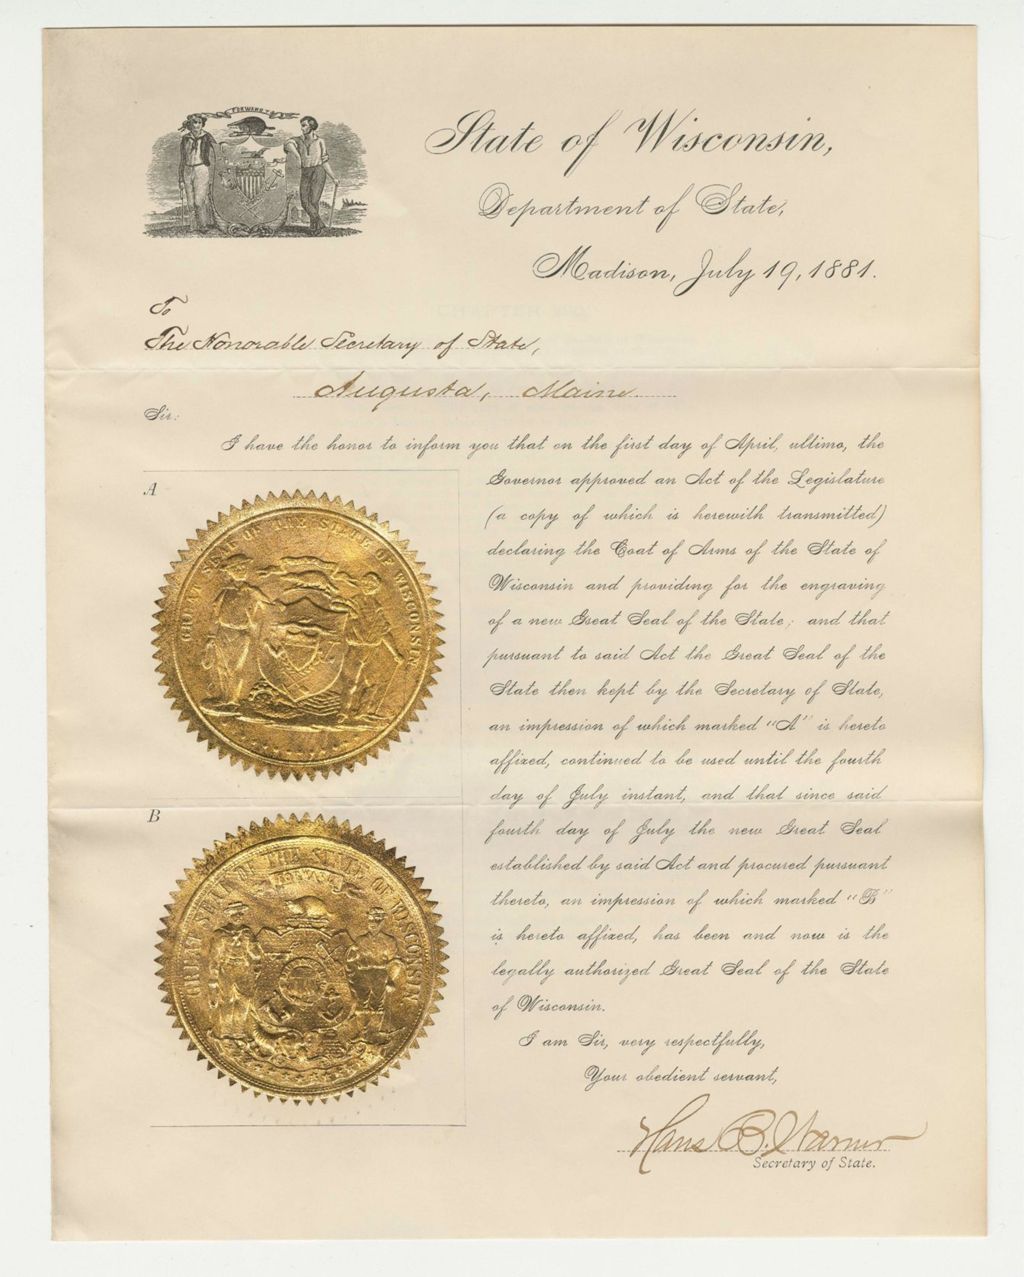 FORWARD
State of Wisconsin,
Department of State,
Madison, July 19, 1881.
To
The Honorable Secretary of State,
Augusta, Maine.
Sir:
I have the honor to inform you that on the first day of April, ultimo, the
A
Governor approved an Act of the Legislature
(a copy of which is herewith transmitted)
declaring the Coat of Arms of the State of
Wisconsin and providing for the engraving
of a new Great Seal of the State; and that
pursuant to said Act the Great Seal of the
State then kept by the Secretary of State,
an impression of which marked "A" is hereto
affixed, continued to be used until the fourth
day of July instant, and that since said
fourth day of July the new Great Seal
established by said Act and procured pursuant
thereto, an impression of which marked "B"
is hereto affixed, has been and now is the
legally authorized Great Seal of the State
of Wisconsin.
GREAT SEAL OF THE STATE OF WISCONSIN
B
GREAT SEAL OF THE STATE OF WISCONSIN
FORWARD
I am Sir, very respectfully,
Your obedient servant,
Hans B. Warner
Secretary of State.